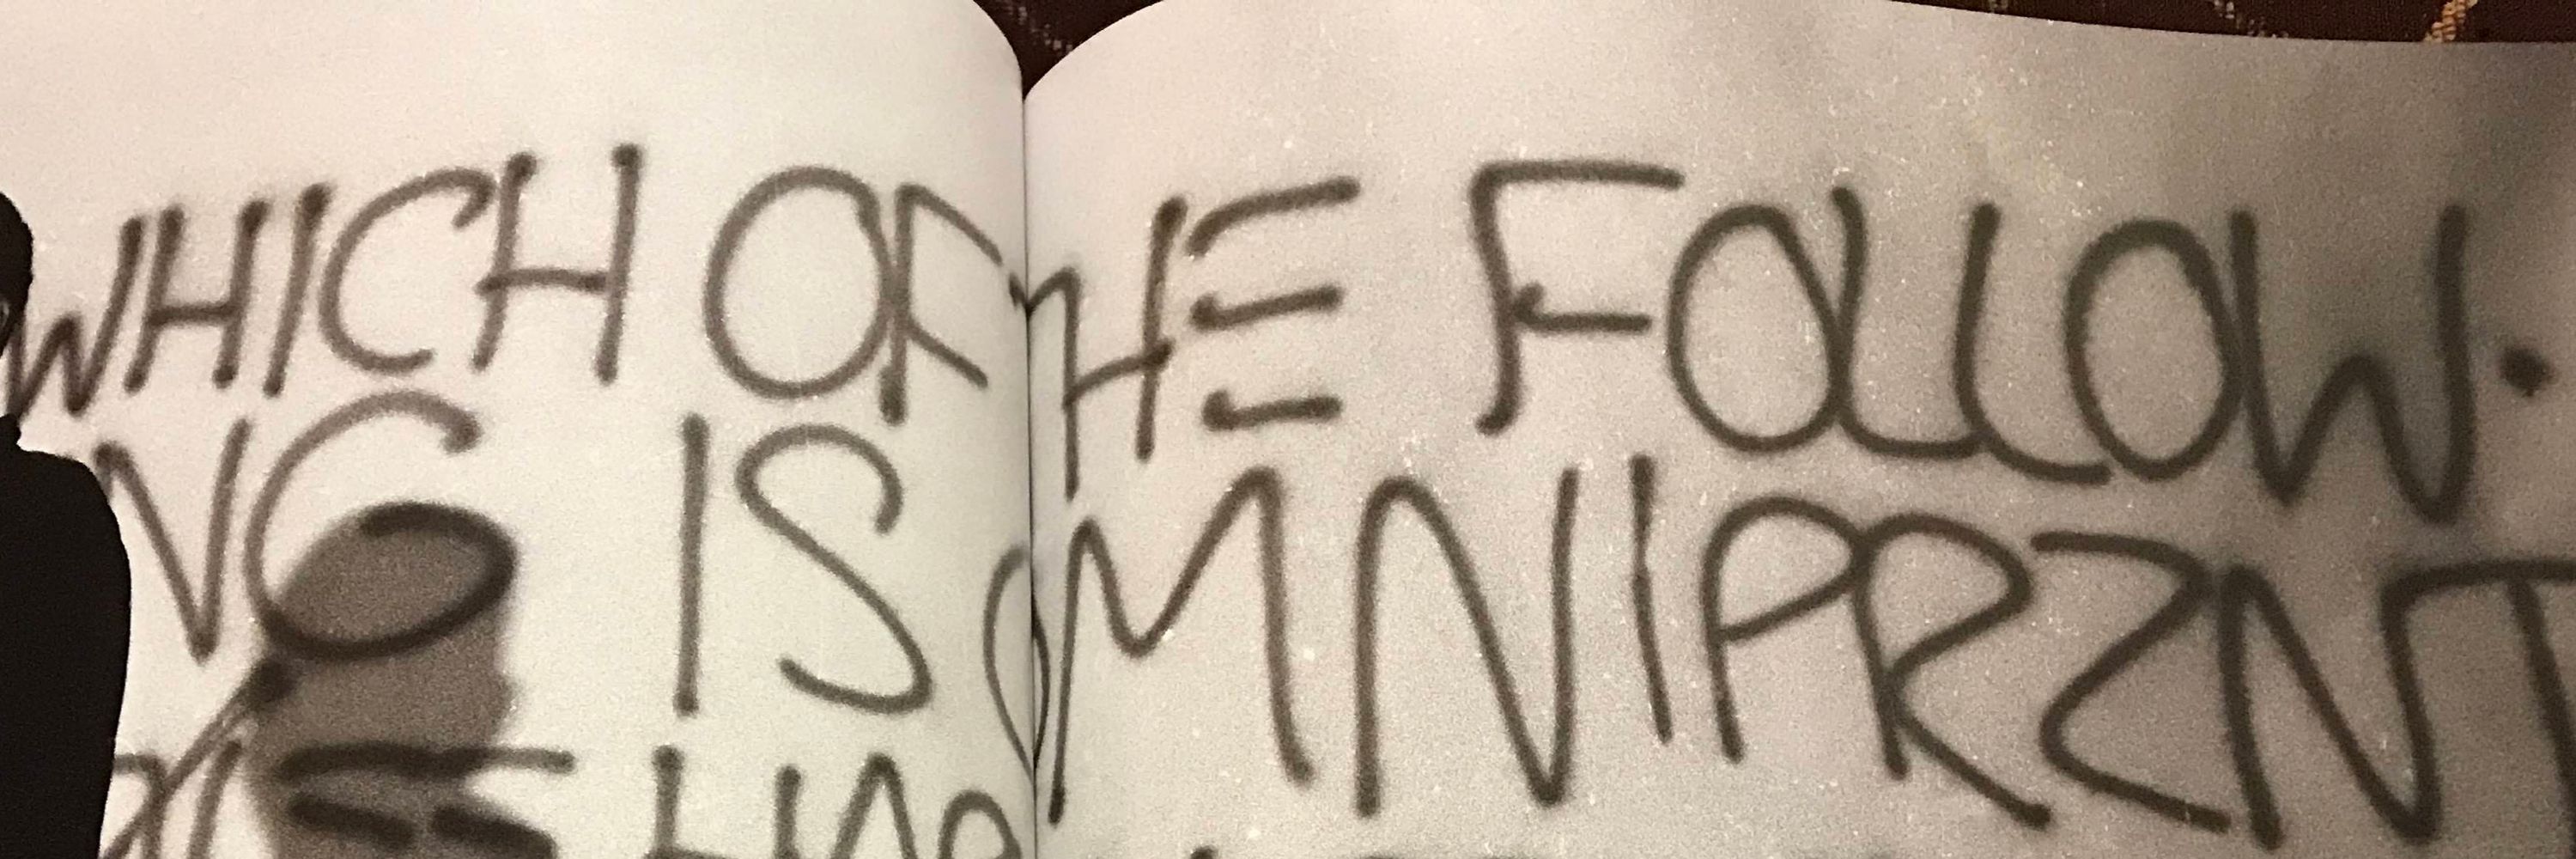 WHICH OF THE FOLLOW.
ING IS OMNIPRZNT